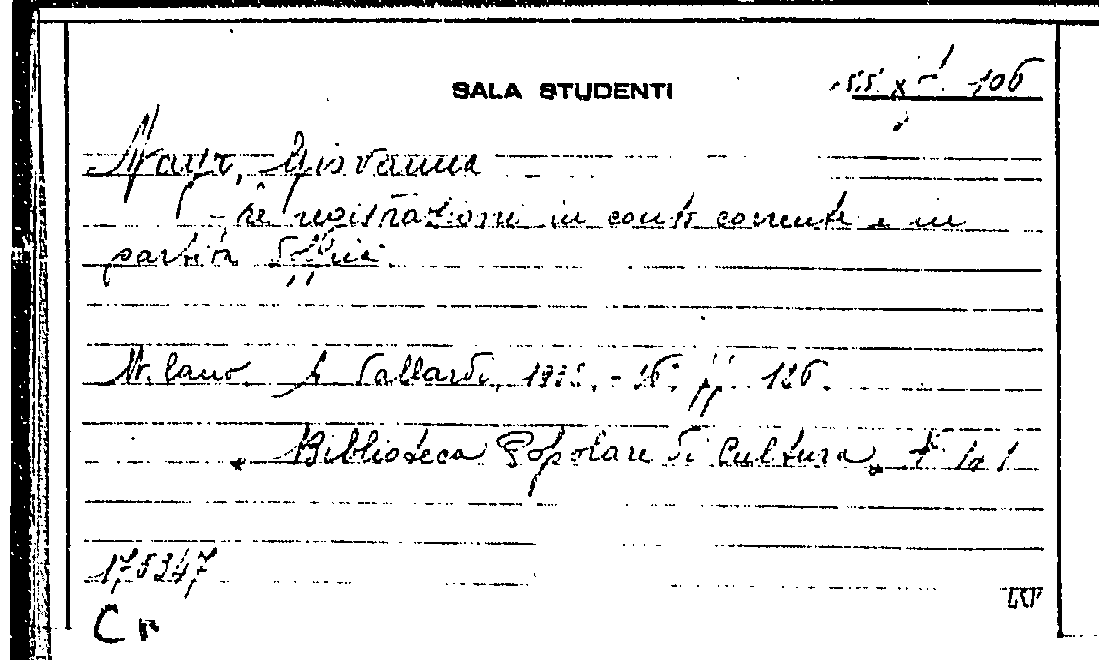 SALA STUDENTI
Mayr, Giovanna
Le registrazioni in conti correnti e in
partita doppia.
Milano. A. Vallardi, 193 . - 16° pp. 126.
"Biblioteca Popolare di Cultura"
175247
Cr